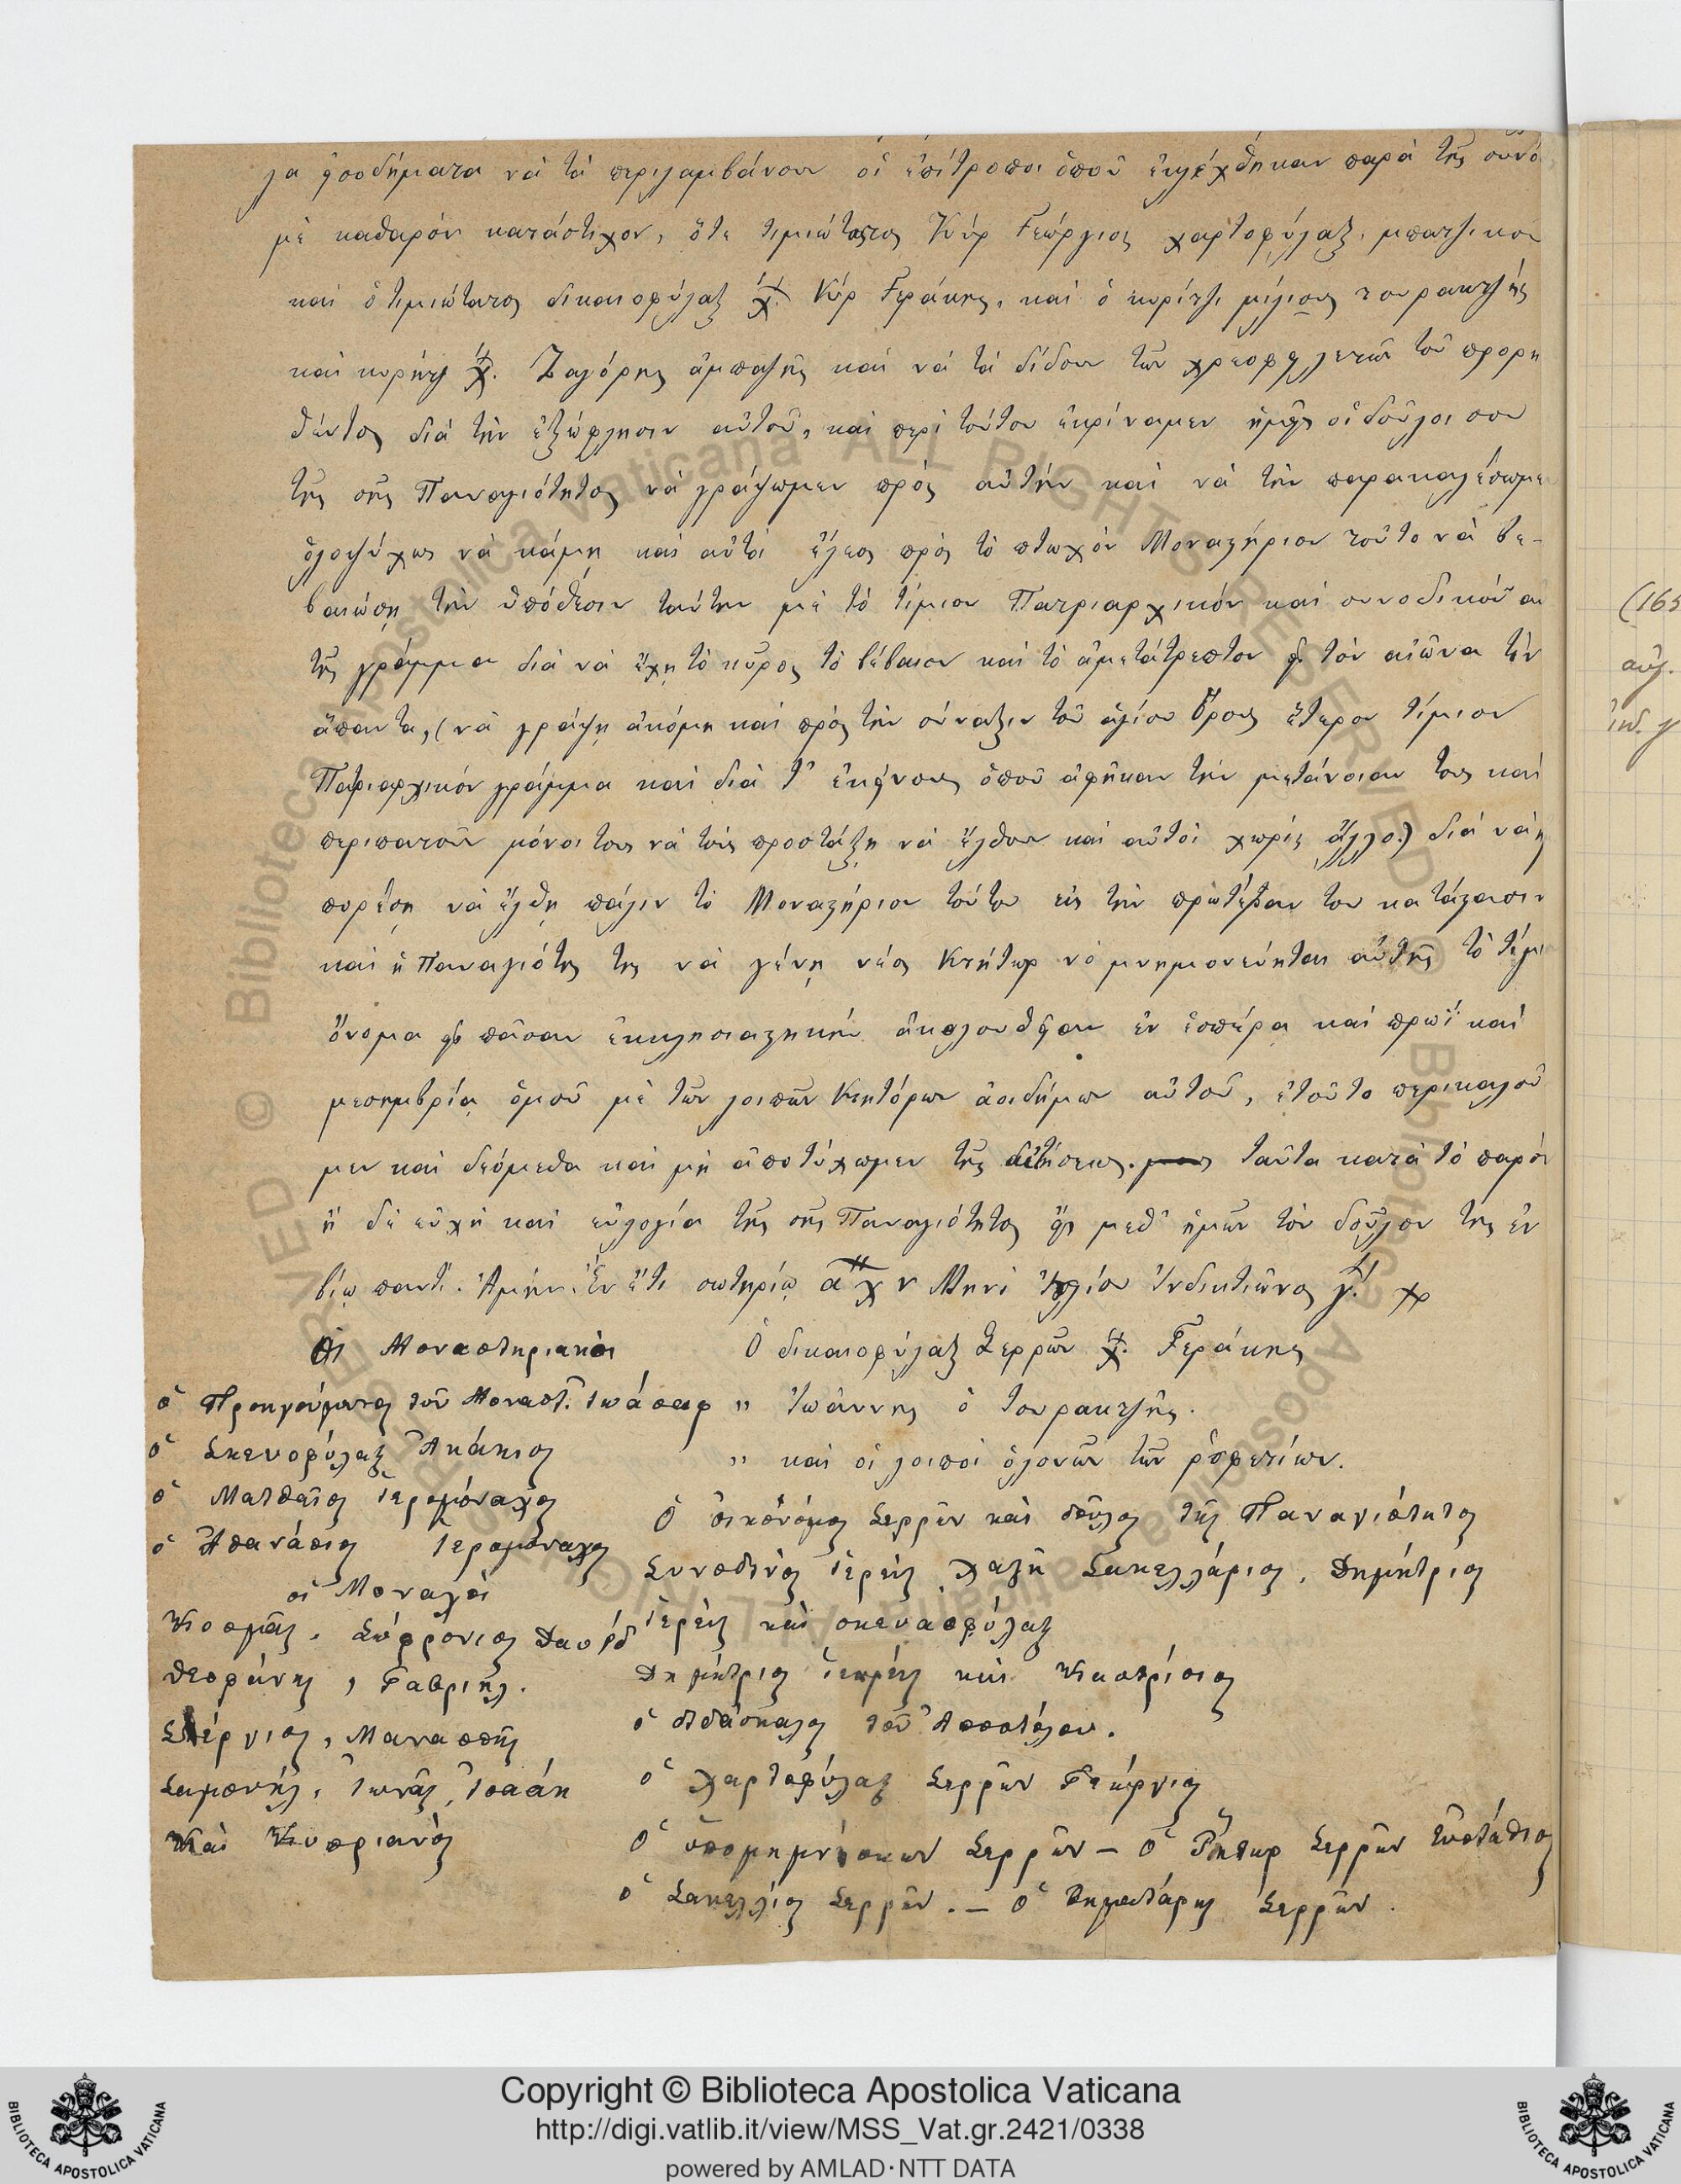 λα εἰσοδήματα νὰ τὰ περιλαμβάνουν οἱ ἐπίτροποι ὁποῦ ἐκλέχθηκαν παρὰ τῆς συνό
μὲ καθαρὸν κατάστιχον, ὅτε τιμιώτατος Κὺρ Γεώργιος χαρτοφύλαξ.
καὶ ὁ τιμιώτατος δικαιοφύλαξ χ. Κὺρ Γεράκης, καὶ ὁ κυρίτζι μίλιους τουρακτζῆς
καὶ κυρήτζ χ. Ζαγόρης ἀμπατζῆς καὶ νὰ τὰ δίδουν τῶν χρεοφειλετῶν τοῦ προρη
θέντος διὰ τὴν ἐξώφλησιν αὐτοῦ, καὶ περὶ τούτου ἐκρίναμεν ἡμεῖς οἱ δοῦλοι σου
τῆς σῆς Παναγιότητος νὰ γράψωμεν πρὸς αὐτὴν καὶ νὰ τὴν παρακαλέσωμε
ὁλοψύχως νὰ κάμῃ καὶ αὐτὴ ἔλεος πρὸς τὸ πτωχὸν Μοναστήριον τοῦτο νὰ βε-
βαιώσῃ τὴν ὑπόθεσιν ταύτην μὲ τὸ τίμιον Πατριαρχικόν καὶ συνοδικόν αὐ
τῆς γράμμα διὰ νὰ ἔχῃ τὸ κῦρος τὸ βέβαιον καὶ τὸ ἀμετάτρεπτον εἰς τὸν αἰῶνα τὸν
ἅπαντα, (νὰ γράψῃ ἀκόμη καὶ πρὸς τὴν σύναξιν τοῦ ἁγίου Ὄρους ἕτερον τίμιον
Πατριαρχικόν γράμμα καὶ διὰ τ' ἐκείνους ὁποῦ ἀφῆκαν τὴν μετάνοιαν τους καὶ
περιπατοῦν μόνοι τους νὰ τοὺς προστάξῃ νὰ ἔλθουν καὶ αὐτοὶ χωρὶς ἄλλο) διὰ νὰ ἠ
πορέσῃ νὰ ἔλθῃ πάλιν τὸ Μοναστήριον τοῦτο εἰς τὴν πρώτην του κατάστασιν
καὶ ἡ Παναγιότης της νὰ γένῃ νέος Κτήτωρ νὰ μνημονεύηται αὐτῆς τὸ τίμι
ὄνομα εἰς πᾶσαν ἐκκλησιαστικήν ἀκολουθείαν ἐν ἑσπέρᾳ καὶ πρωῒ καὶ
μεσημβρίᾳ ὁμοῦ μὲ τῶν λοιπῶν Κτητόρων ἀοιδήμων αὐτοῦ, ἐτοῦτο περικαλοῦ
μεν καὶ δεόμεθα καὶ μὴ ἀποτύχωμεν τῆς αἰτήσεως. ταῦτα κατὰ τὸ παρόν
ἡ δὲ εὐχὴ καὶ εὐλογία τῆς σῆς Παναγιότητος εἴη μεθ' ἡμῶν τῶν δούλων της ἐν
βίῳ παντί. Ἀμήν. Ἐν ἔτει σωτηρίῳ α χ ν Μηνὶ Ἰουλίου Ἰνδικτιῶνος γ.
Οἱ Μοναστηριακοὶ
ὁ Προηγούμενος τοῦ Μοναστ. Ἰωάσαφ
ὁ Σκευοφύλαξ Ἀκάκιος
ὁ Ματθαῖος ἱερομόναχος
ὁ Ἀθανάσιος ἱερομόναχος
οἱ Μοναχοὶ
Κοσμᾶς, Σωφρόνιος Δαυίδ
Θεοφάνης, Γαβριήλ.
Στέργιος, Μανασσῆς
Σαμουήλ, Ἰωνᾶς, Ἰσαάκ
καὶ Κυπριανὸς
Ὁ δικαιοφύλαξ Σερρῶν χ. Γεράκης
" Ἰωάννης ὁ τουρακτζῆς.
" καὶ οἱ λοιποὶ ὁλονῶν τῶν ῥοφετίων.
Ὁ οἰκονόμος Σερρῶν καὶ δοῦλος τῆς Παναγιότητος
Συνοδινὸς ἱερεὺς χατζῆ Σακελλάριος, Δημήτριος
ἱερεὺς καὶ σκευοφύλαξ
Δημήτριος ἱερεὺς καὶ Καστρίσιος
ὁ διδάσκαλος τοῦ Ἀποστόλου.
ὁ χαρτοφύλαξ Σερρῶν Γεώργιος
Ὁ ὑπομιμνήσκων Σερρῶν – Ὁ Ῥήτωρ Σερρῶν Εὐστάθιος
ὁ Σακελλίος Σερρῶν. – ὁ Δημοτάρης Σερρῶν.
(165
αὐγ.
ἰνδ. γ
© Biblioteca Apostolica Vaticana ALL RIGHTS RESERVED
Copyright © Biblioteca Apostolica Vaticana
http://digi.vatlib.it/view/MSS_Vat.gr.2421/0338
powered by AMLAD·NTT DATA
BIBLIOTECA APOSTOLICA VATICANA
BIBLIOTECA APOSTOLICA VATICANA